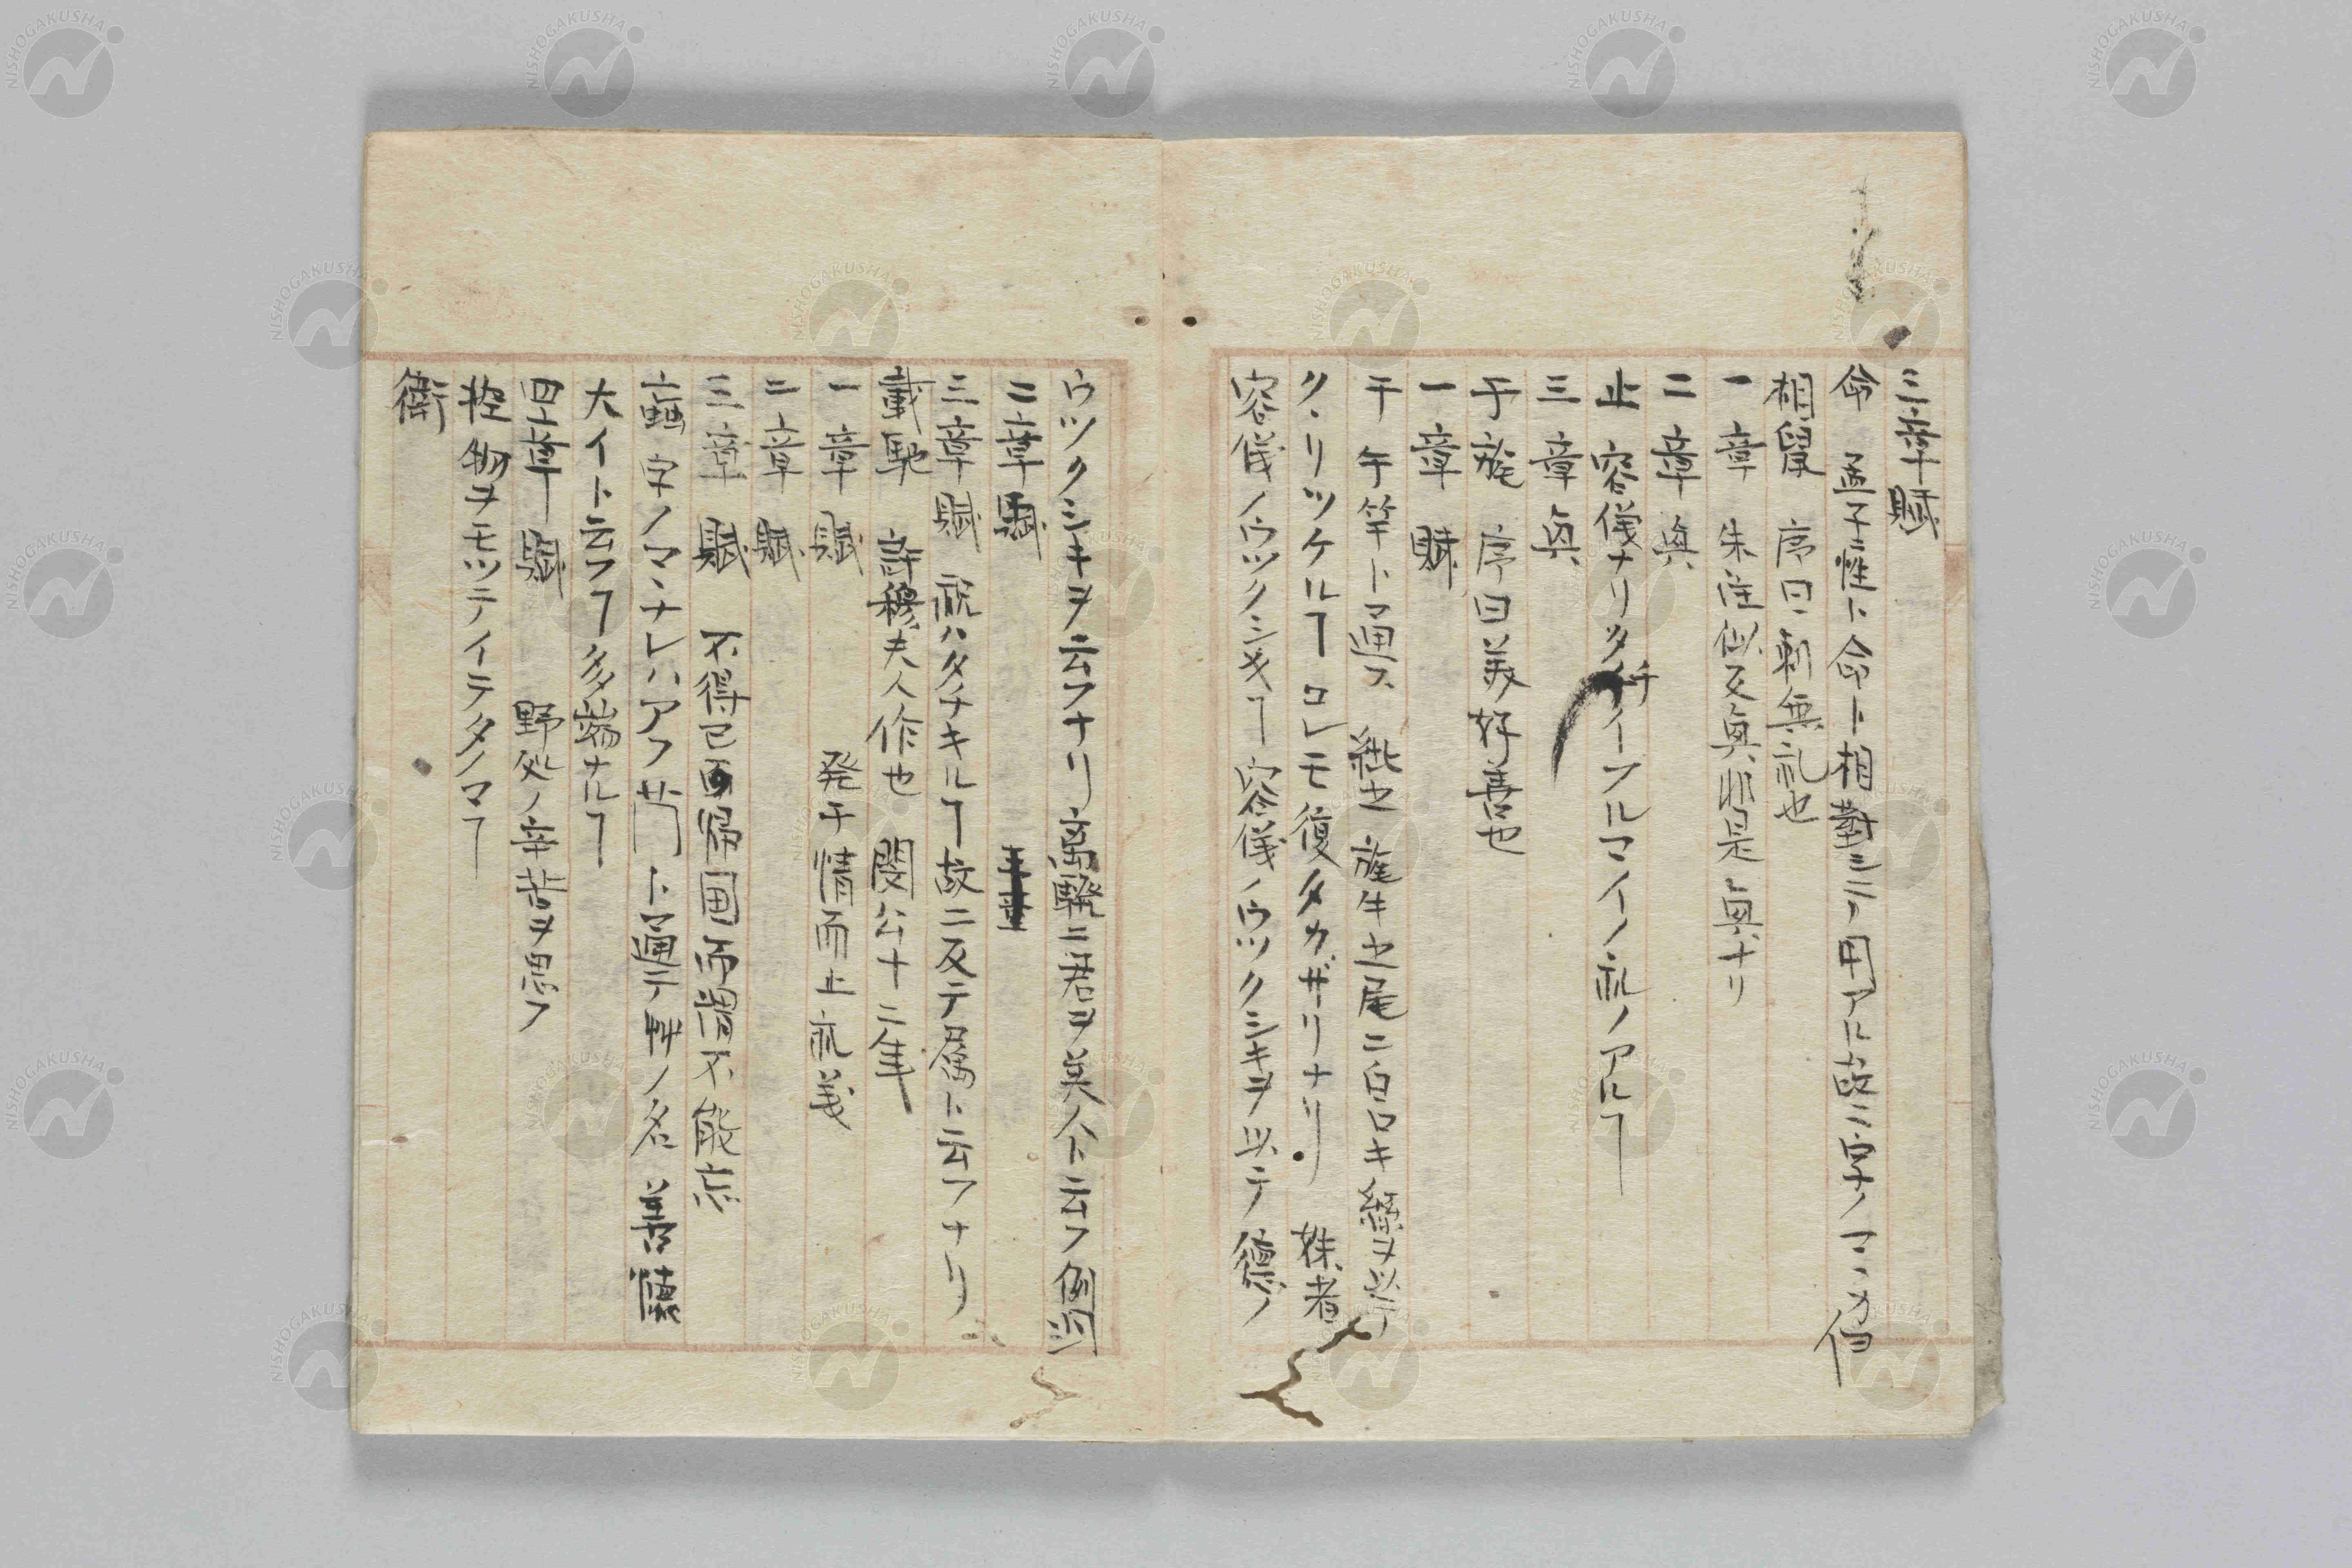 三章賦
命 孟子ニ性ト命ト相對シテ用アル故ニ字ノマヽカ但
相鼠 序曰刺無礼也
一章 朱注似反興非是興ナリ
二章 興
止 容儀ナリタチイフルマイノ礼ノアルヿ
三章 興
干旄 序曰美好善也
一章 賦
干 午竿ト通ス 紕之 旄牛之尾ニ白ロキ絲ヲ以テ
クヽリツケルヿコレモ復タカザリナリ 姝者
容儀ノウツクシキヿ容儀ノウツクシキヲ以テ德ノ
ウツクシキヲ云フナリ离騷ニ君ヲ美人ト云フ例同
二章賦
三章賦 祝ハタチキルヿ故ニ反テ属ト云フナリ
載馳 許穆夫人作也 閔公十二年
一章賦 発于情而止礼義
二章賦
三章賦 不得已而歸国而猶不能忘
蝱 字ノマヽナレハアフ ト通テ艸ノ名 善懷
大イト云フヿ多端ナルヿ
四章賦 野処ノ辛苦ヲ思フ
控 物ヲモツテイテタノマヿ
衛